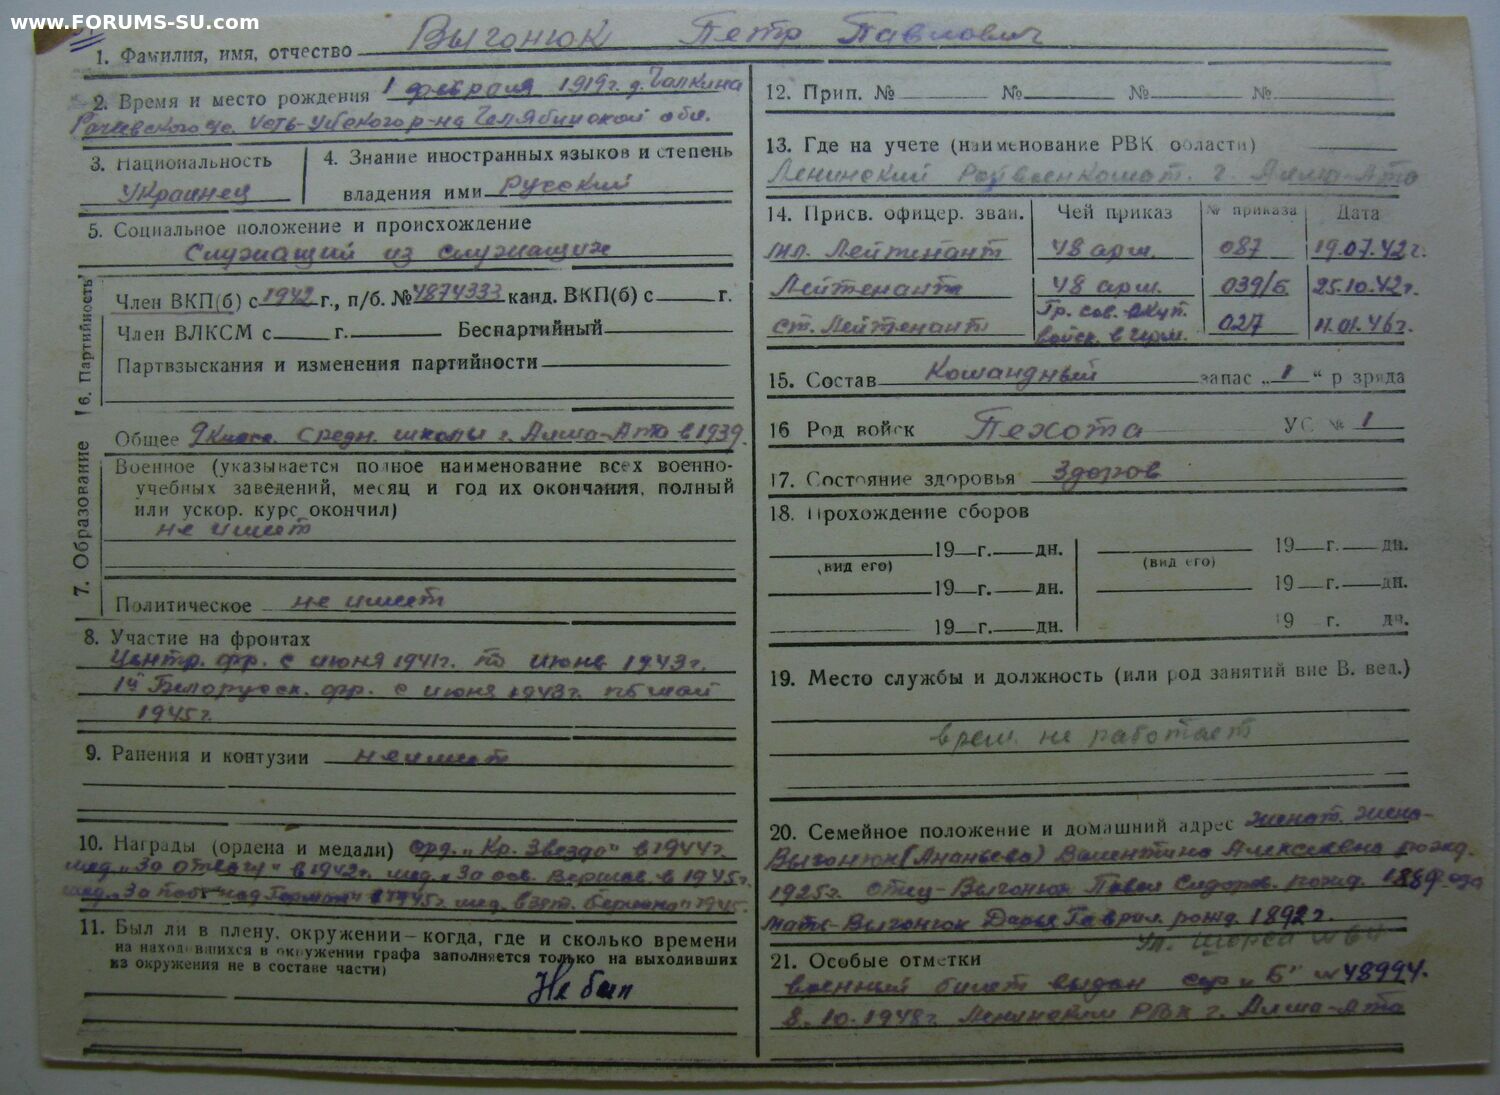 www.FORUMS-SU.com
1. Фамилия, имя, отчество Выгонюк Петр Павлович
2. Время и место рождения 1 февраля 1919г. д. Галкина
Усть-Уйского р-на Челябинской обл.
3. Национальность
Украинец
4. Знание иностранных языков и степень
владения ими Русский
5. Социальное положение и происхождение
Служащий из служащих
6. Партийность
Член ВКП(б) с 1942 г., п/б. № 4874333 канд. ВКП(б) с г.
Член ВЛКСМ с г. Беспартийный
Партвзыскания и изменения партийности
7. Образование
Общее 9 класс. средн. школы г. Алма-Ата в 1939.
Военное (указывается полное наименование всех военно-
учебных заведений, месяц и год их окончания, полный
или ускор. курс окончил)
не имеет
Политическое не имеет
8. Участие на фронтах
Центр. фр. с июня 1941г. по июнь 1943г.
1й Белорусск. фр. с июня 1943г. по май
1945г.
9. Ранения и контузии не имеет
10. Награды (ордена и медали) орд. „Кр. Звезда" в 1944г.
мед. „За отвагу" в 1942г. мед. „За осв. Варшав. в 1945г.
мед. „За поб. над Герман" в 1945г. мед. взят. Берлина" 1945.
11. Был ли в плену, окружении—когда, где и сколько времени
на находившихся в окружении графа заполняется только на выходивших
из окружения не в составе части)
Не был
12. Прип. № № № №
13. Где на учете (наименование РВК области)
Ленинский Райвоенкомат. г. Алма-Ата
14. Присв. офицер. зван. Чей приказ № приказа Дата
мл. Лейтенант 48 арм. 087 19.07.42г.
Лейтенант 48 арм. 039/б 25.10.42г.
ст. Лейтенант Гр. сов. оккуп. войск. в Герм. 027 11.01.46г.
15. Состав Командный запас „1" разряда
16 Род войск Пехота УС № 1
17. Состояние здоровья Здоров
18. Прохождение сборов
19 г. дн. 19 г. дн.
(вид его) (вид его)
19 г. дн. 19 г. дн.
19 г. дн. 19 г. дн.
19. Место службы и должность (или род занятий вне В. вед.)
врем. не работает
20. Семейное положение и домашний адрес женат. жена-
Выгонюк (Ананьева) Валентина Алексеевна рожд.
1925г. отец-Выгонюк Павел Сидоров. рожд.
мать-Выгонюк Дарья Гаврил. рожд. 1892г.
ул. Щорса № 64
21. Особые отметки
военный билет выдан сер „Б" № 48994.
8.10.1948г Ленинским РВК г. Алма-Ата